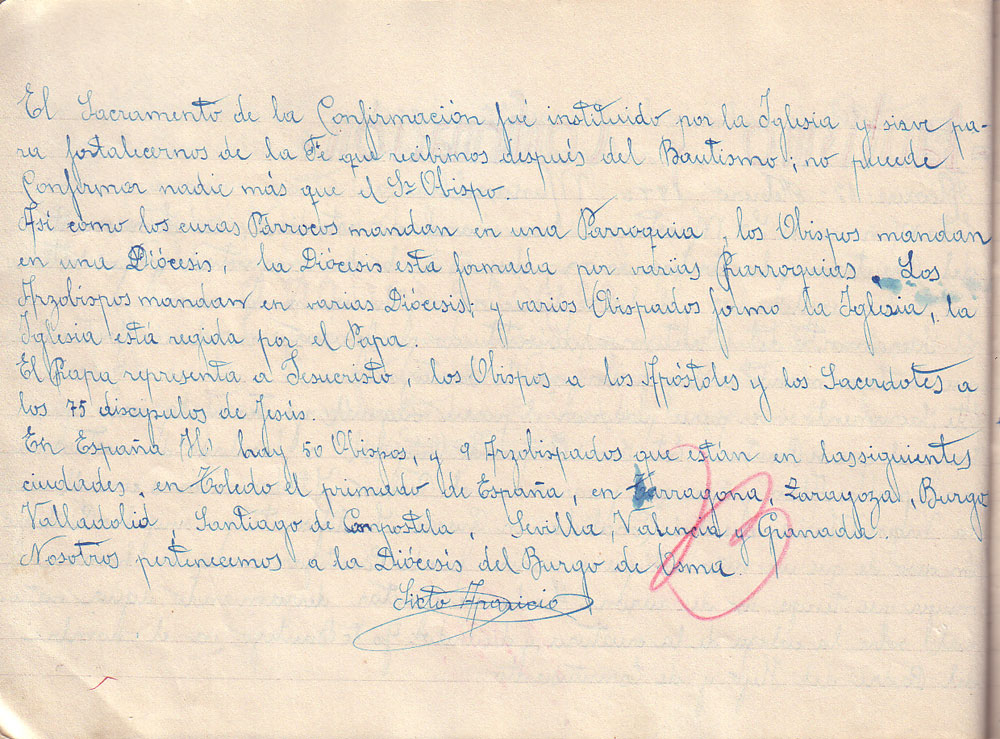 El Sacramento de la Confirmación fué instituido por la Iglesia y sirve pa-
ra fortalecernos de la Fé que recibimos después del Bautismo; no puede
Confirmar nadie más que el Sr Obispo.
Así como los curas Párrocos mandan en una Parroquia, los Obispos mandan
en una Diócesis, la Diócesis esta formada por varias Parroquias. Los
Arzobispos mandan en varias Diócesis; y varios Obispados formo la Iglesia, la
Iglesia está regida por el Papa.
El Papa representa a Jesucristo, los Obispos a los Apóstoles y los Sacerdotes a
los 75 discipulos de Jesús
En España hay 50 Obispos, y 9 Arzobispados que están en lassiguientes
ciudades, en Toledo el primado de España, en Tarragona, Zaragoza, Burgo
Valladolid, Santiago de Compostela, Sevilla, Valencia y Granada
Nosotros pertenecemos a la Diócesis del Burgo de Osma.
Sixto Aparicio